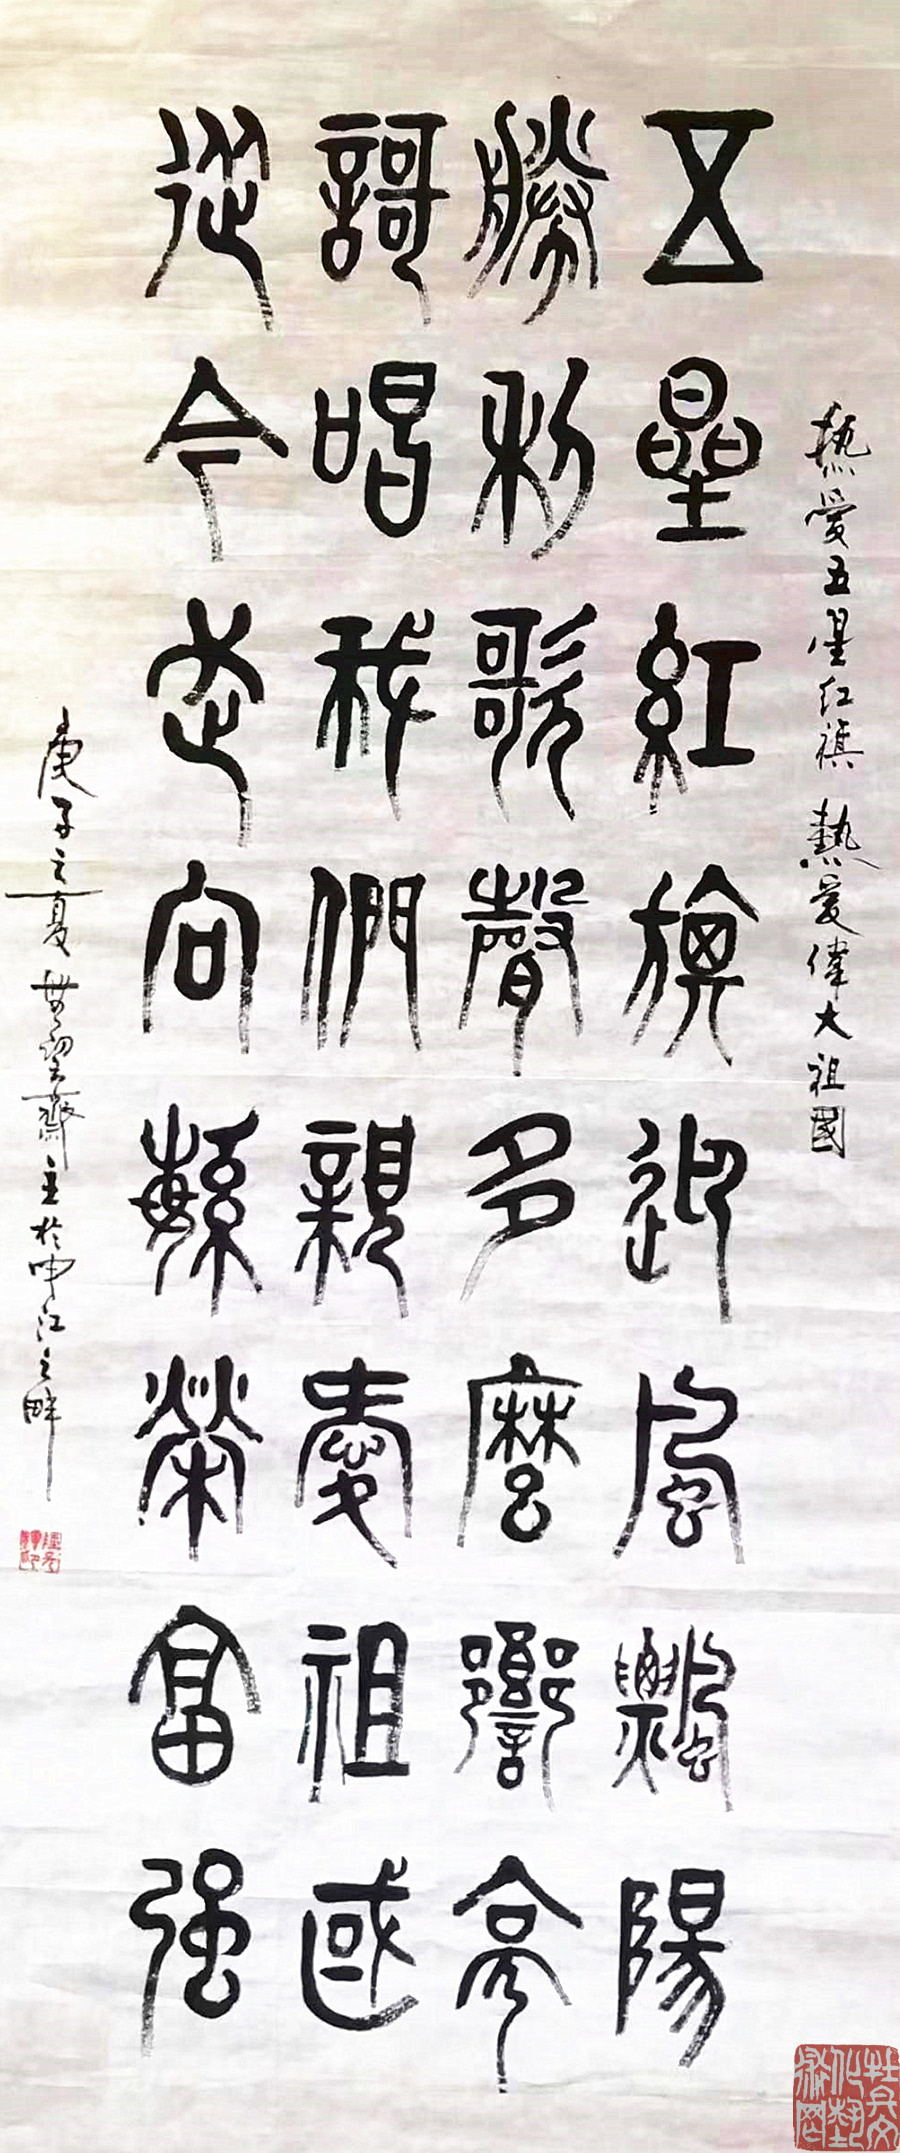 熱愛五星红旗 熱愛偉大祖國
五星紅旗迎风飘陽
勝利歌聲多麼響亮
謌唱我們親愛祖國
从今走向繁榮富强
庚子之夏無望齋主於申江之畔